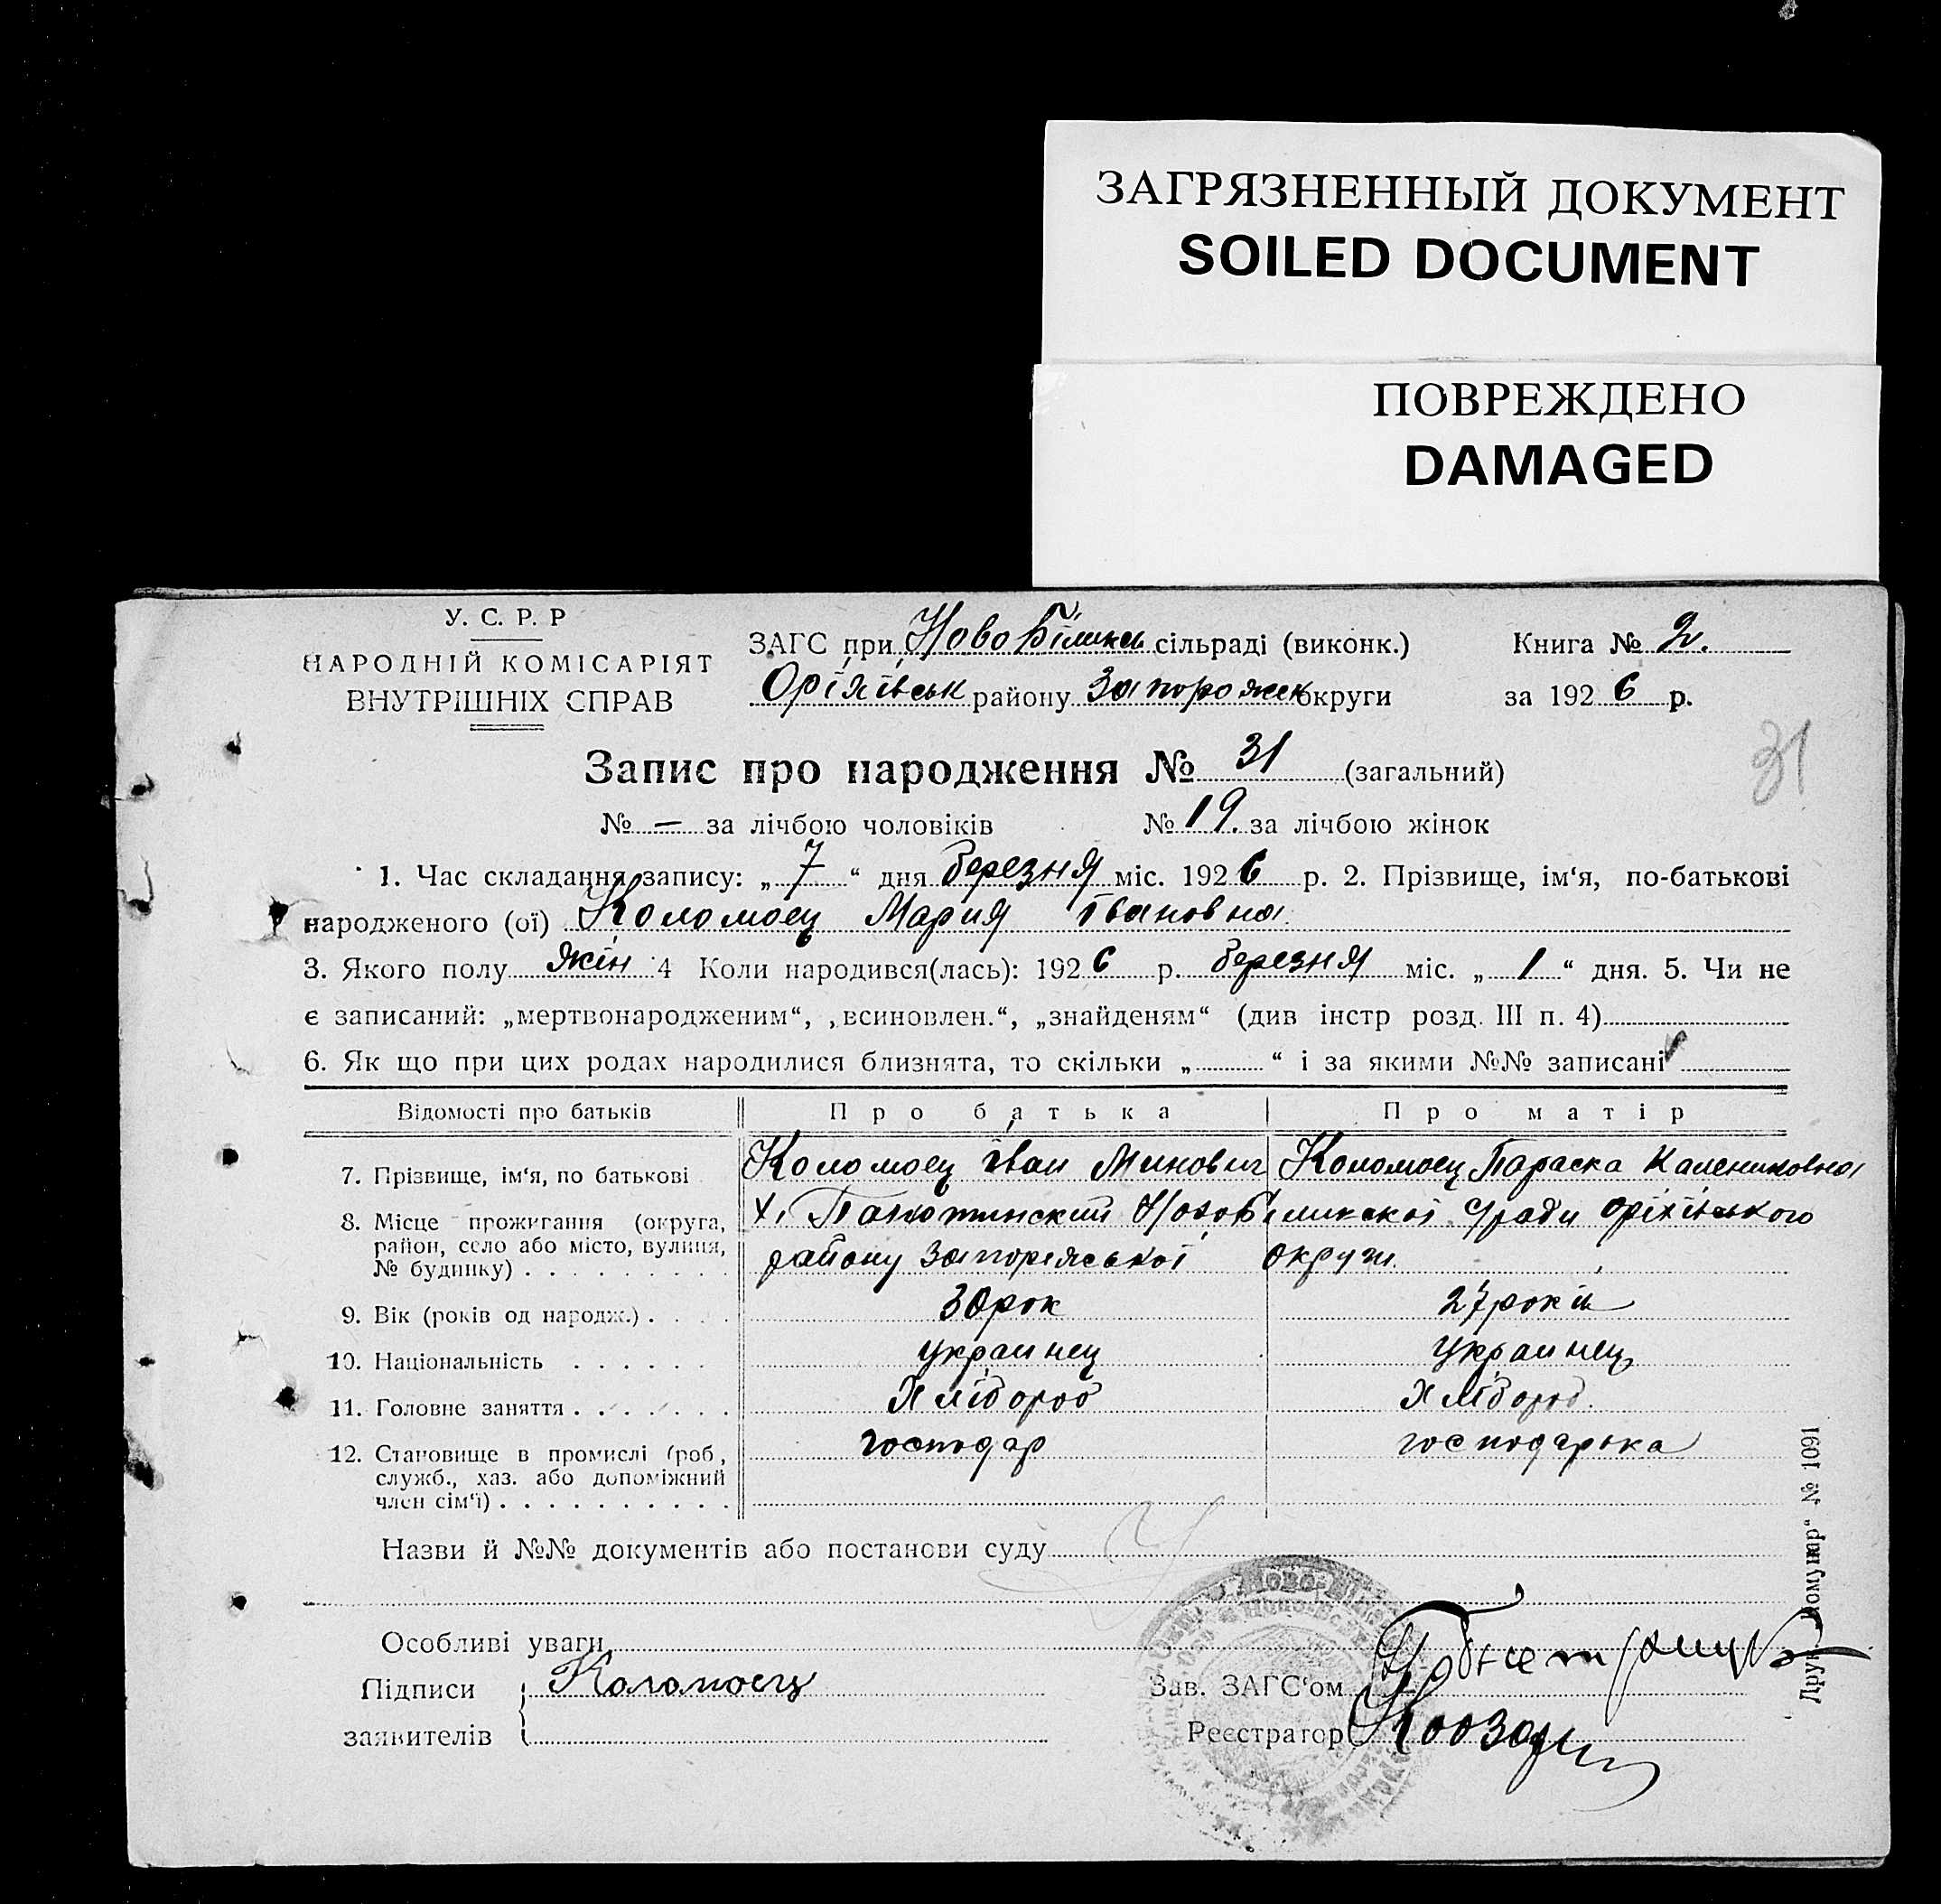 ЗАГРЯЗНЕННЫЙ ДОКУМЕНТ
SOILED DOCUMENT
ПОВРЕЖДЕНО
DAMAGED
У. С. Р. Р
НАРОДНІЙ КОМІСАРІЯТ
ВНУТРІШНІХ СПРАВ
ЗАГС при Ново Білики сільраді (виконк.)
Оріхівськ району Запорожск округи
Книга № 2.
за 1926 р.
31
Запис про народження № 31 (загальний)
№ — за лічбою чоловіків № 19. за лічбою жінок
1. Час складання запису: „ 7 “ дня березня міс. 1926 р. 2. Прізвище, ім‘я, по-батькові
народженого (ої) Коломоец Мария Івановна
3. Якого полу жін 4 Коли народився(лась): 1926 р. березня міс. „ 1 “ дня. 5. Чи не
є записаний: „мертвонародженим“, „всиновлен.“, „знайденям“ (див інстр розд. III п. 4)
6. Як що при цих родах народилися близнята, то скільки „ “ і за якими №№ записані
Відомості про батьків Про батька Про матір
7. Прізвище, ім‘я, по батькові Коломоец Іван Минович Коломоец Параска Калениковна
8. Місце прожигання (округа, район, село або місто, вулиця, № будинку) х. Панютинский С/ради Оріхівського
району Запоріяської округи.
9. Вік (років од народж.) 30 рок 27 рокіи
10. Національність украинец украинец
11. Головне заняття Хлібороб Хлібороб.
12. Становище в промислі (роб, служб., хаз. або допоміжний член сім‘ї) господар господарька
Назви й №№ документів або постанови суду
Особливі уваги
Підписи Коломоец Зав. ЗАГС‘ом
заявителів Реєстратор
№ 1091